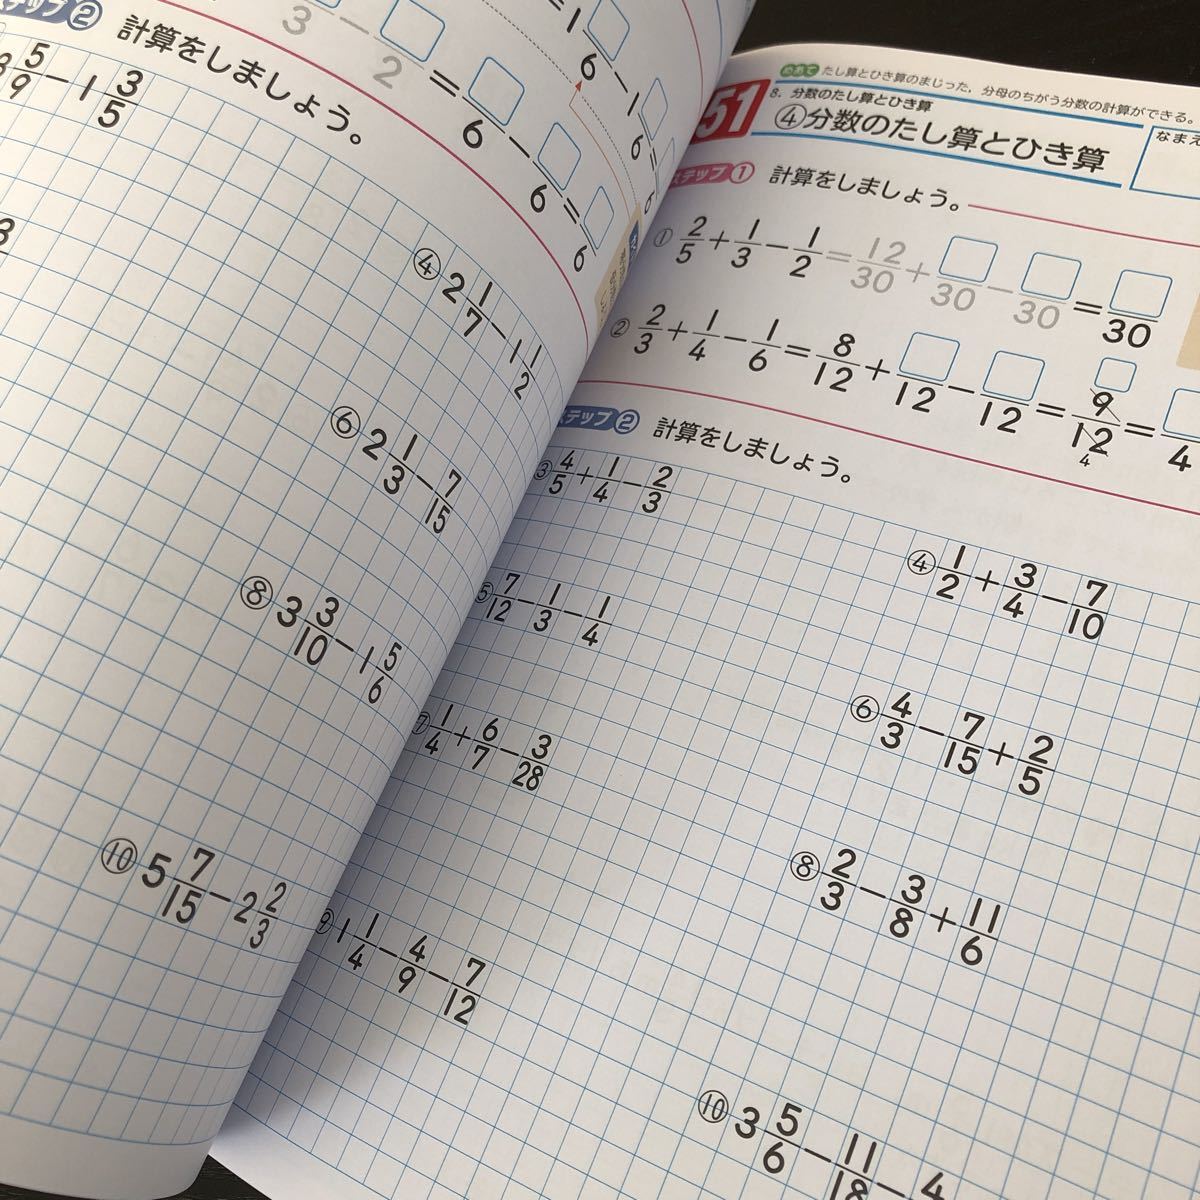 ステップ②
計算をしましょう。
5/9 − 1 3/5
④ 2 1/7 − 1 1/2
⑥ 2 1/3 − 7/15
⑧ 3 3/10 − 1 5/6
⑩ 5 7/15 − 2 2/3
たし算とひき算のまじった，分母のちがう分数の計算ができる。
51
8. 分数のたし算とひき算
④分数のたし算とひき算
なまえ
ステップ① 計算をしましょう。
① 2/5 + 1/3 − 1/2 = 12/30 + □/30 − □/30 = □/30
② 2/3 + 1/4 − 1/6 = 8/12 + □/12 − □/12 = 9/12 = □/4
ステップ② 計算をしましょう。
③ 4/5 + 1/4 − 2/3
④ 1/2 + 3/4 − 7/10
⑤ 7/12 − 1/3 − 1/4
⑥ 4/3 − 7/15 + 2/5
⑦ 1/4 + 6/7 − 3/28
⑧ 2/3 − 3/8 + 11/6
⑨ 1 1/4 − 4/9 − 7/12
⑩ 3 5/6 − 11/18 − 4